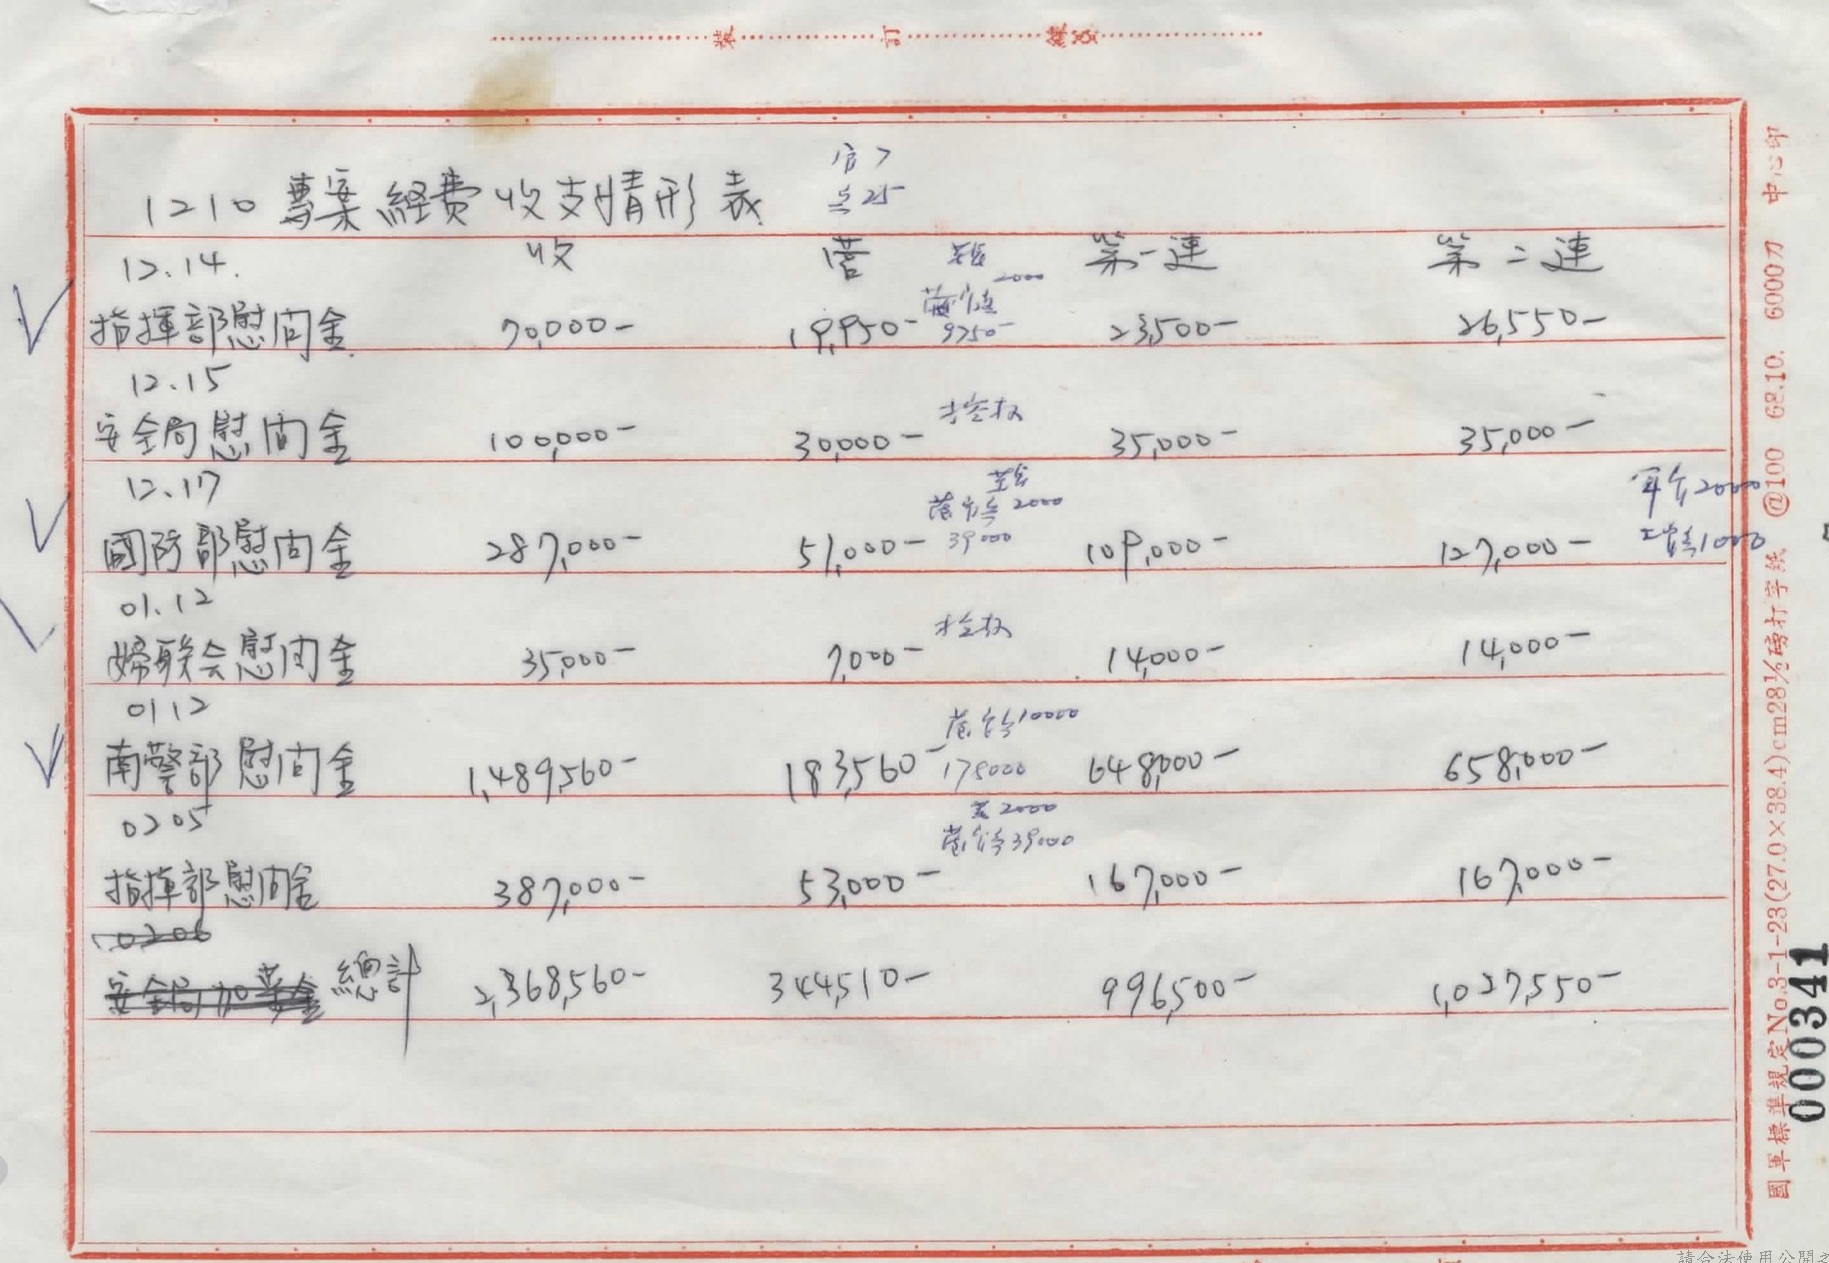 裝 訂 線
1210 專案經費收支情形表
官7
兵25
12.14. 收 營 第一連 第二連
2000
指揮部慰问金 70,000- 19,950- 9750- 23,500- 26,550-
12.15
安全局慰问金 100,000- 30,000- 35,000- 35,000-
12.17
2000
國防部慰问金 287,000- 51,000- 39000 109,000- 127,000-
2000
1000
01.12
婦联会慰问金 35,000- 7,000- 14,000- 14,000-
0112
10000
南警部慰问金 1,489,560- 183,560- 175000 648,000- 658,000-
0205
2000
39000
指揮部慰问金 387,000- 53,000- 167,000- 167,000-
0206
安全局加菜金 總計 2,368,560- 344,510- 996,500- 1,027,550-
國軍標準規定No.3-1-23(27.0×38.4)cm28½磅打字紙 @100 68.10. 6000刀 中心印
000341